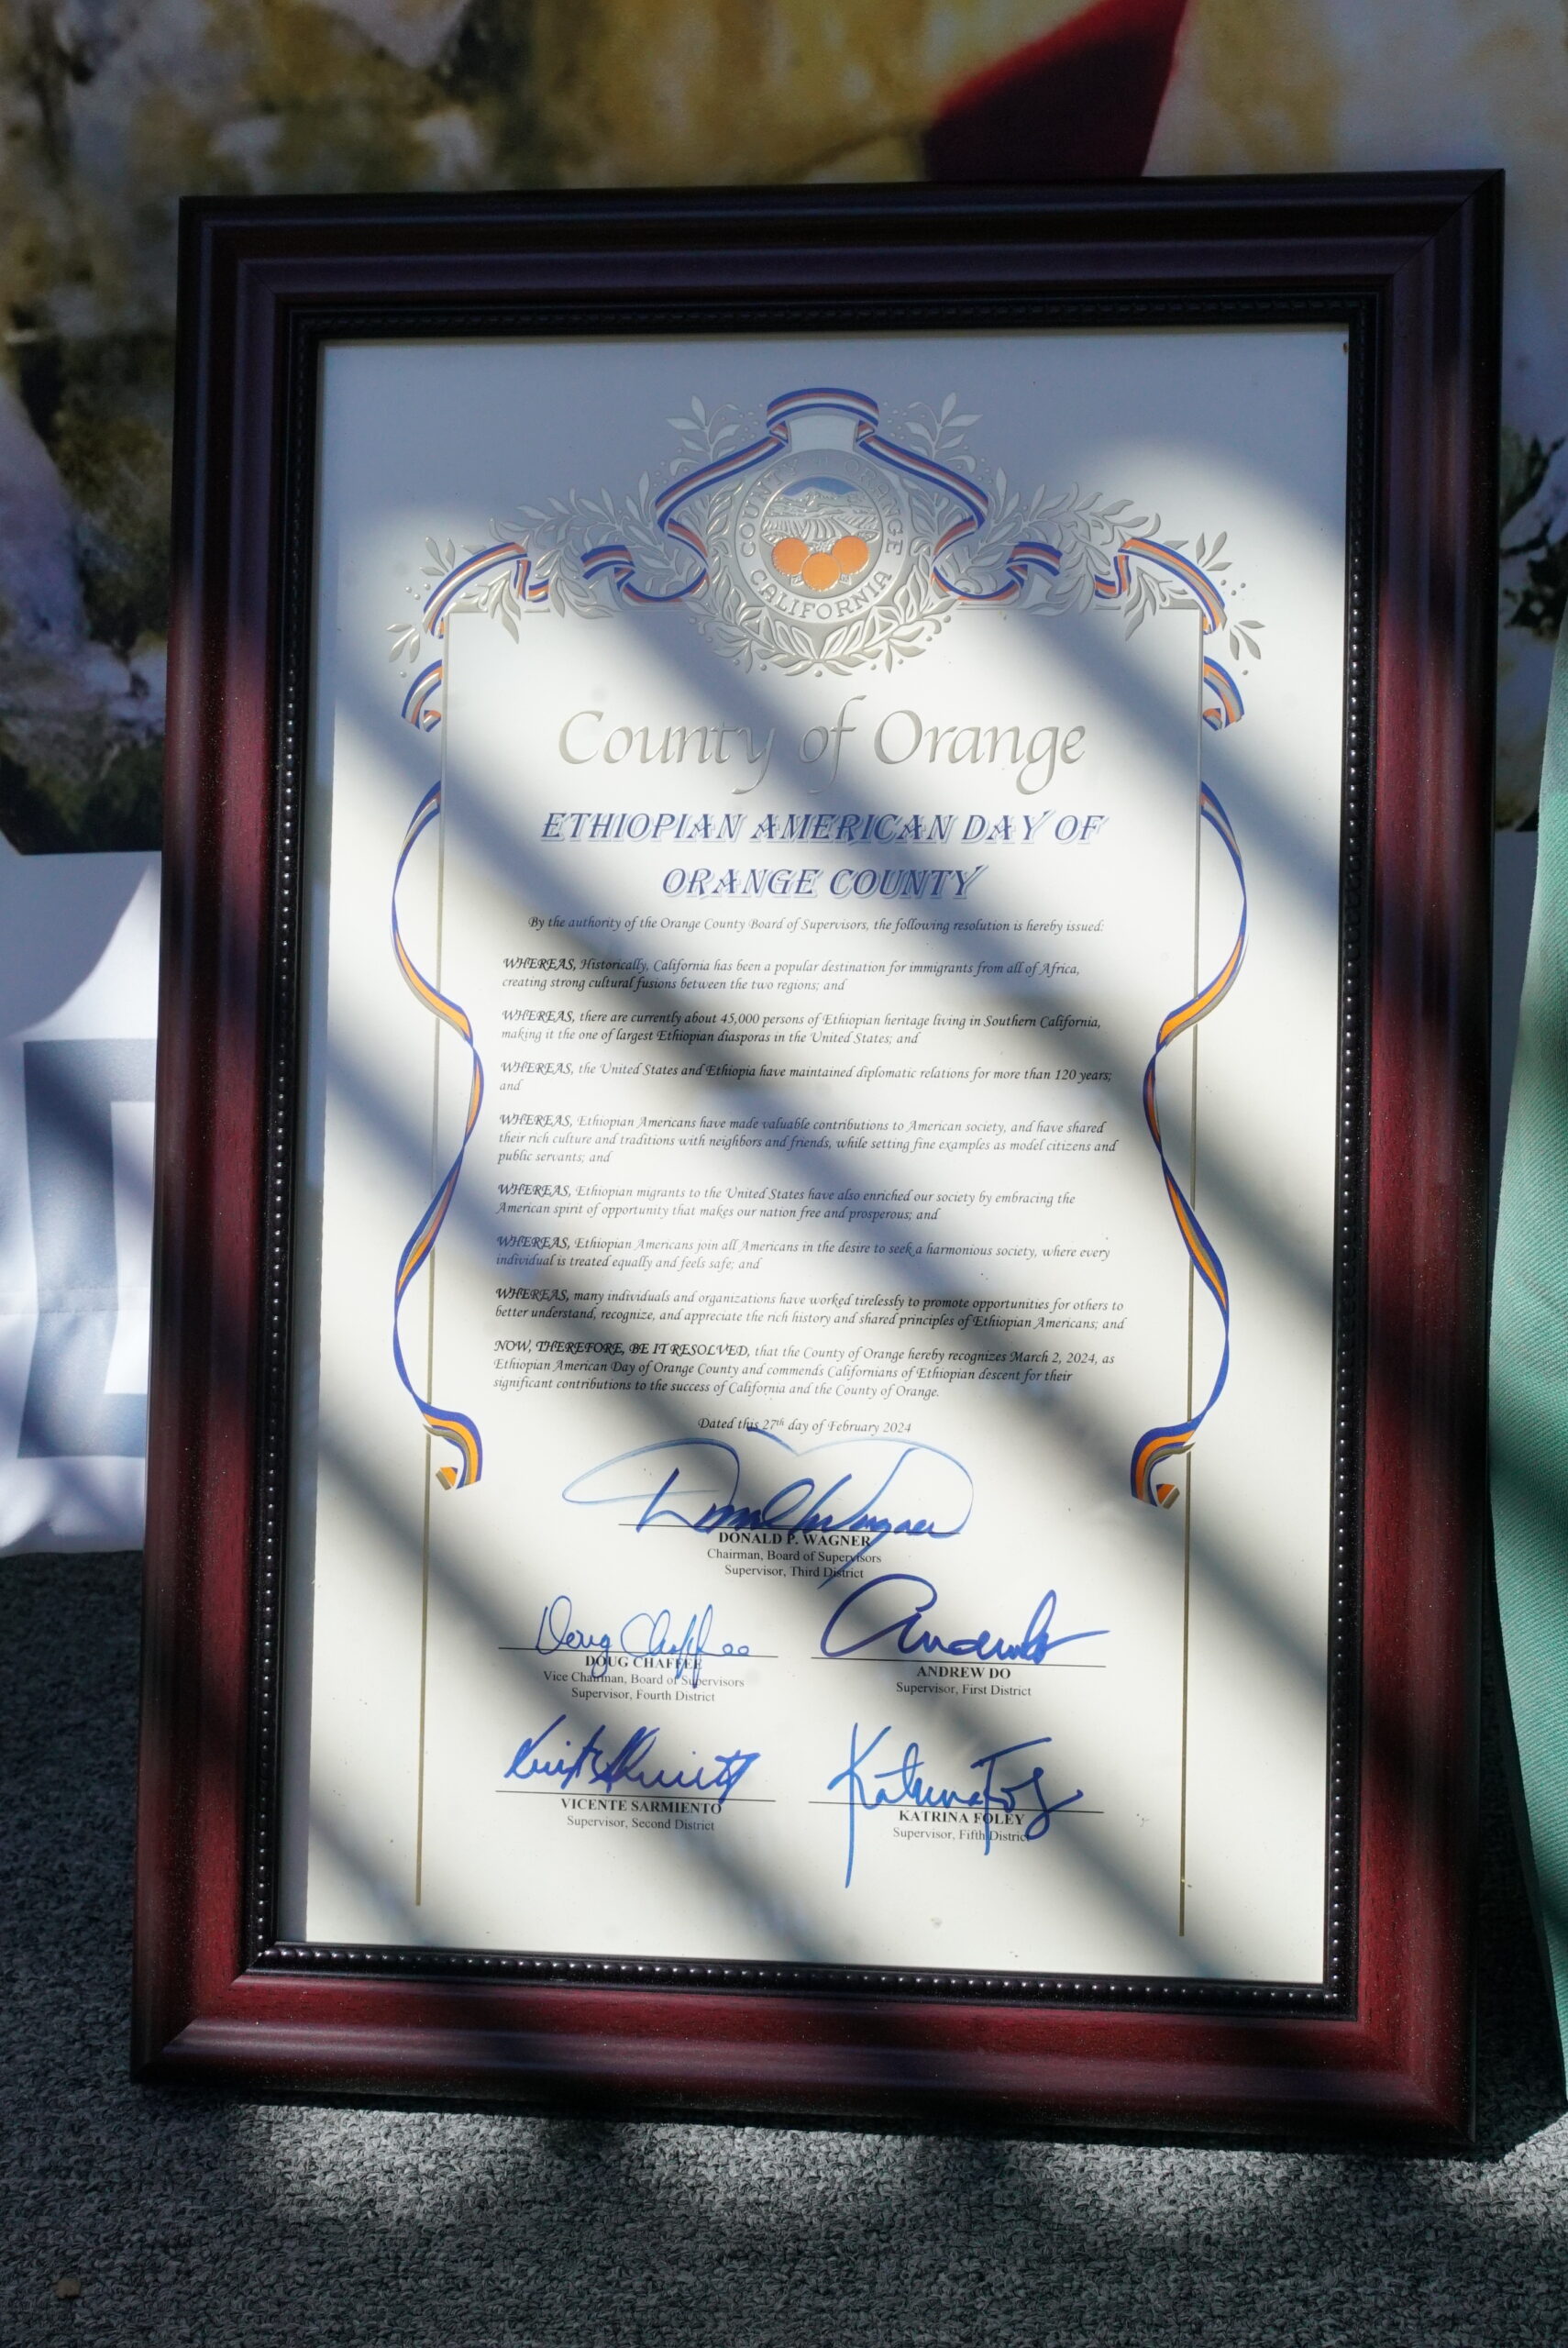 COUNTY OF ORANGE
CALIFORNIA
County of Orange
ETHIOPIAN AMERICAN DAY OF
ORANGE COUNTY
By the authority of the Orange County Board of Supervisors, the following resolution is hereby issued:
WHEREAS, Historically, California has been a popular destination for immigrants from all of Africa,
creating strong cultural fusions between the two regions; and
WHEREAS, there are currently about 45,000 persons of Ethiopian heritage living in Southern California,
making it the one of largest Ethiopian diasporas in the United States; and
WHEREAS, the United States and Ethiopia have maintained diplomatic relations for more than 120 years;
and
WHEREAS, Ethiopian Americans have made valuable contributions to American society, and have shared
their rich culture and traditions with neighbors and friends, while setting fine examples as model citizens and
public servants; and
WHEREAS, Ethiopian migrants to the United States have also enriched our society by embracing the
American spirit of opportunity that makes our nation free and prosperous; and
WHEREAS, Ethiopian Americans join all Americans in the desire to seek a harmonious society, where every
individual is treated equally and feels safe; and
WHEREAS, many individuals and organizations have worked tirelessly to promote opportunities for others to
better understand, recognize, and appreciate the rich history and shared principles of Ethiopian Americans; and
NOW, THEREFORE, BE IT RESOLVED, that the County of Orange hereby recognizes March 2, 2024, as
Ethiopian American Day of Orange County and commends Californians of Ethiopian descent for their
significant contributions to the success of California and the County of Orange.
Dated this 27th day of February 2024
Donald P. Wagner
DONALD P. WAGNER
Chairman, Board of Supervisors
Supervisor, Third District
Doug Chaffee
DOUG CHAFFEE
Vice Chairman, Board of Supervisors
Supervisor, Fourth District
Andrew Do
ANDREW DO
Supervisor, First District
VICENTE SARMIENTO
Supervisor, Second District
Katrina Foley
KATRINA FOLEY
Supervisor, Fifth District